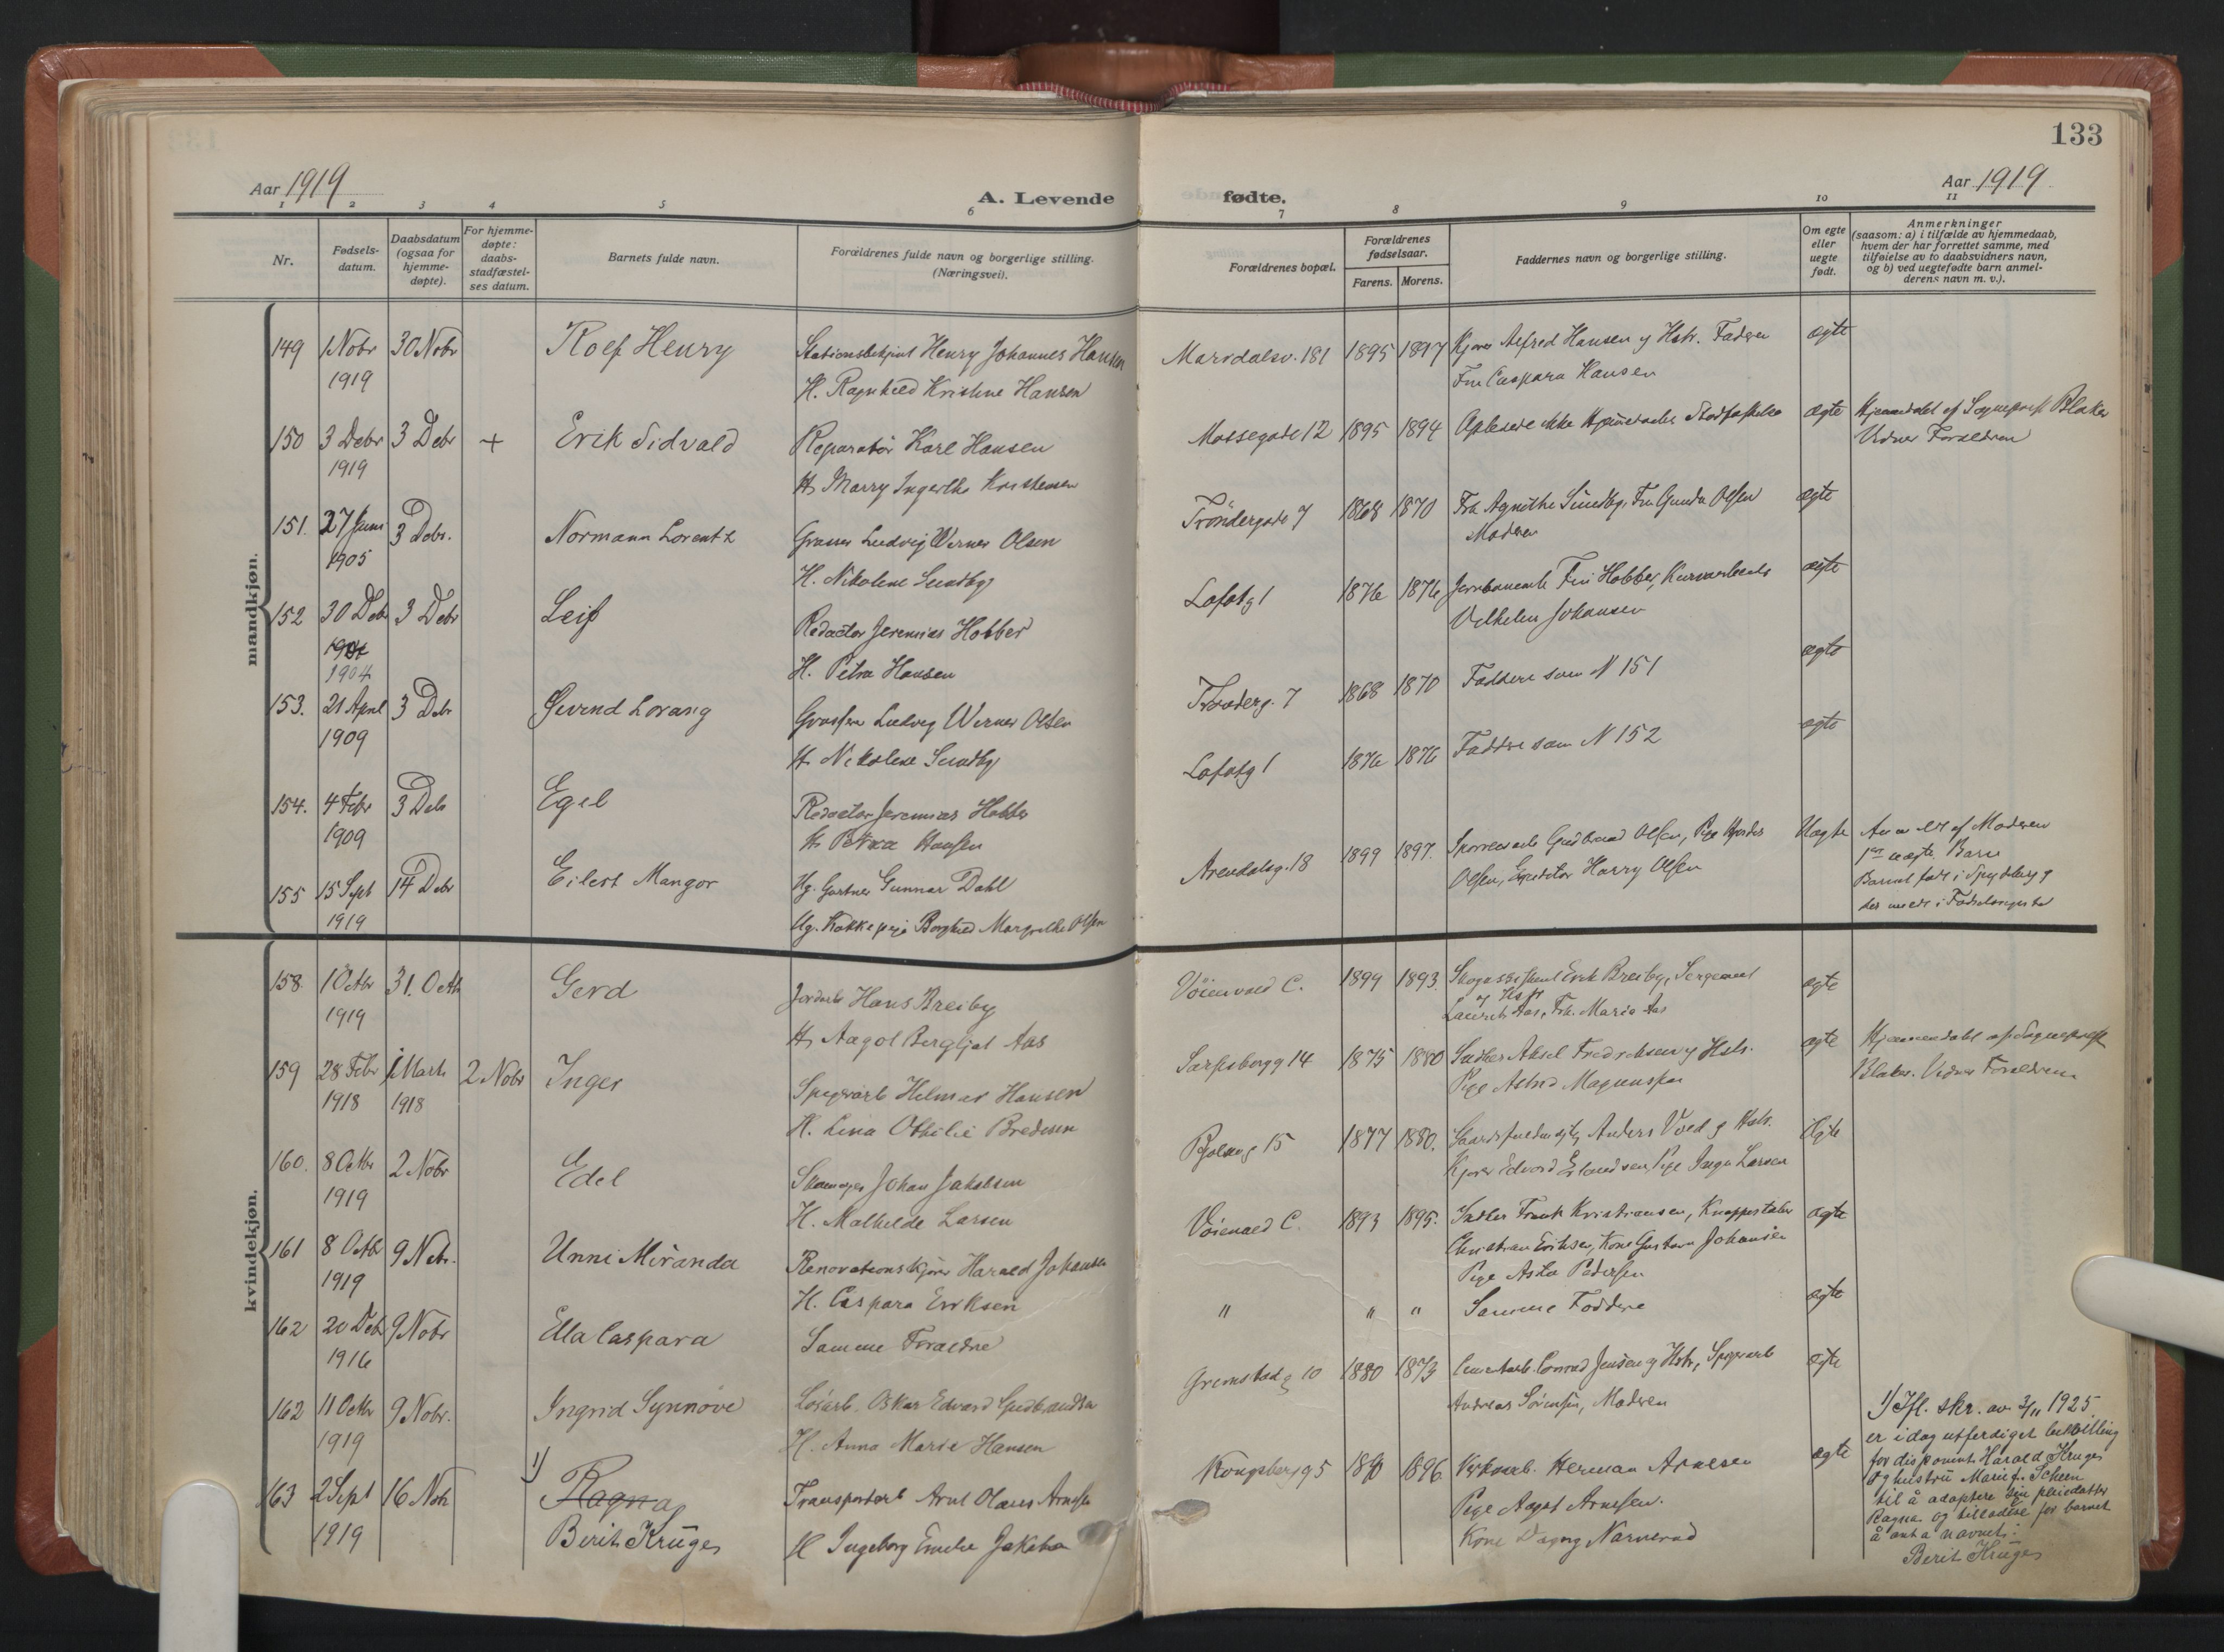 133
Aar 1919
A. Levende
fødte.
Aar 1919
1 2 3 4 5 6 7 8 9 10 11
Nr.
Fødsels-
datum.
Daabsdatum
(ogsaa for
hjemme-
døpte).
For hjemme-
døpte:
daabs-
stadfæstel-
ses datum.
Barnets fulde navn.
Forældrenes fulde navn og borgerlige stilling.
(Næringsvei).
Forældrenes bopæl.
Forældrenes
fødselsaar.
Farens. Morens.
Faddernes navn og borgerlige stilling.
Om egte
eller
uegte
født.
Anmerkninger
(saasom: a) i tilfælde av hjemmedaab,
hvem der har forrettet samme, med
tilføielse av to daabsvidners navn,
og b) ved uegtefødte barn anmel-
derens navn m. v.).
mandkjøn.
149 1 Nobr 30 Nobr Rolf Henry Stationsbetjent Henry Johannes Hansen Maridalsv. 181 1895 1897 Kjører Alfred Hansen og Hstr. Faderen ægte
1919 H. Ragnhild Kristine Hansen Fru Caspara Hansen
150 3 Debr 3 Debr + Erik Sidvald Reparatør Karl Hansen Mossegade 12 1895 1894 ægte Hjemmedøbt af Sogneprest Blaker
1919 H. Marry Kristensen Vidner Forældrene
151. 27 Juni 3 Debr. Normann Lorentz Grosser Ludvig Werner Olsen Trøndergade 7 1868 1870 Frk Agnethe Sundby, Fru Gunda Olsen ægte
1905 H. Nikoline Sundby Moderen
152 30 Debr 3 Debr Leif Redactør Jeremias Hobber Lofotg 1 1876 1876 Fru Hobber, ægte
1904 H. Petra Hansen Vilhelm Johansen
153. 21 April 3 Debr Øivind Lorang Grosserer Ludvig Werner Olsen Trønderg. 7 1868 1870 Faddere som N 151 ægte
1909 H. Nikoline Sundby
154. 4 Febr 3 Debr Egil Redactør Jeremias Hobber Lofotg 1 1876 1876 Faddere som N 152 ægte
1909 H. Petra Hansen
155 15 Sept 14 Debr Eilert Mangor Ug. Gartner Gunnar Dahl Arendalsg. 18 1899 1897. Gudbrand Olsen, Pige Olsen, Harry Olsen Uægte af Moderen
1919 Ug. Kokkepige Borghild Margrethe Olsen 1ste uægte Barn
Barnet født i Spydberg
kvindekjøn.
158 1 Octbr 31. Octbr Gerd Jordarb Hans Breiby Vøienvold C. 1899 1893. Skogsbetjent Erik Breiby, Sergeant ægte
1919 H. Aagot Bergljot Aas Laurits Aas, Frk. Marie Aas
159 28 Febr 1 Marts 2 Nobr Inger Spigerarb Helmer Hansen Sarpsborgg 14 1875 1880 Sadler Aksel Fredriksen og Hstr. ægte Hjemmedøbt af Sogneprest
1918 1918 H. Lina Othilie Bredesen Pige Astrid Magnussen Blaker. Vidner Forældrene
160. 8 Octbr 2 Nobr Edel Skomager Johan Jakobsen Bjølseng 15 1877 1880. Anders Vold og Hstr. ægte
1919 H. Mathilde Larsen Kjører Edvard Erlandsen, Pige Inga Larsen
161 8 Octbr 9 Nobr. Unni Miranda Renovationskjører Harald Johansen Vøienvold C. 1893 1895. Sadler Frank Kristiansen, Knappestøber ægte
1919 H. Caspara Eriksen Christian Eriksen, Kone Gustava Johansen
Pige Asta Pedersen
162 20 Debr 9 Nobr Ella Caspara Samme Forældre " " " Samme Faddere ægte
1916
162 11 Octbr 9 Nobr. Ingrid Synnøve Løsarb. Oskar Edvard Gudbrandsen Grimstadg 10 1880 1873 Conrad Jensen og Hstr, Spigerarb ægte
1919 H. Anna Marie Hansen Andreas Sørensen, Moderen
163 2 Sept 16 Nobr 1) Ragna Transportarb Arnt Olaus Arnesen Kongsbergg 5 1896 Herman Arnesen ægte
1919 Berit Krüger H. Ingeborg Emelie Jakobsen Pige Aagot Arnesen.
Kone Dagny Narverud
1) Ifl. skr. av 3/11 1925
er idag utferdiget bevilling
for disponent Harald Krüger
og hustru Marie f. Scheen
til å adoptere sin pleiedatter
Ragna og tilladelse for barnet
å anta navnet:
Berit Krüger